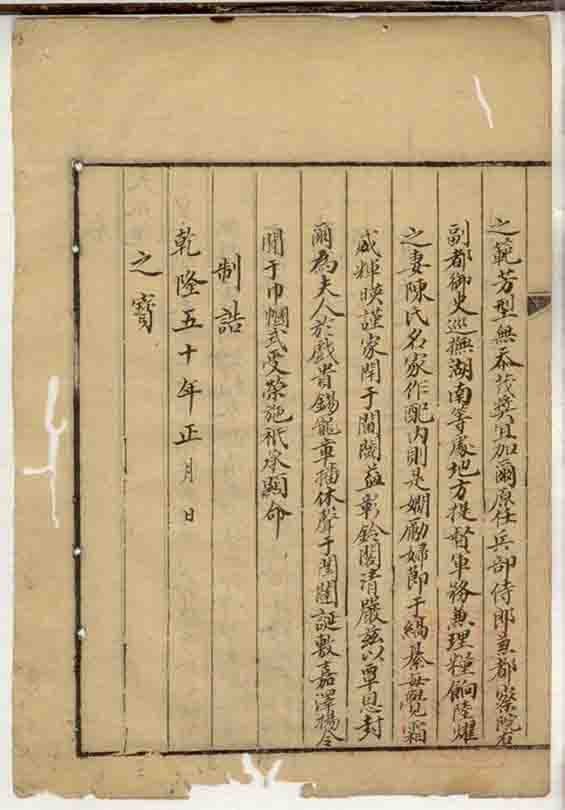 之範芳型無忝茂奬宜加爾原任兵部侍郎兼都察院右
副都御史巡撫湖南等處地方提督軍務兼理糧餉陸燿
之妻陳氏名家作配内則是嫻勵婦節于縞綦每覺霜
威輝映謹家閑于閫閾益彰鈴閣清嚴茲以覃恩封
爾為夫人於戲賁錫龍章播休聲于閨闥誕敷嘉澤揚令
聞于巾幗式受榮施祇承顯命
制誥
乾隆五十年正月 日
之寳